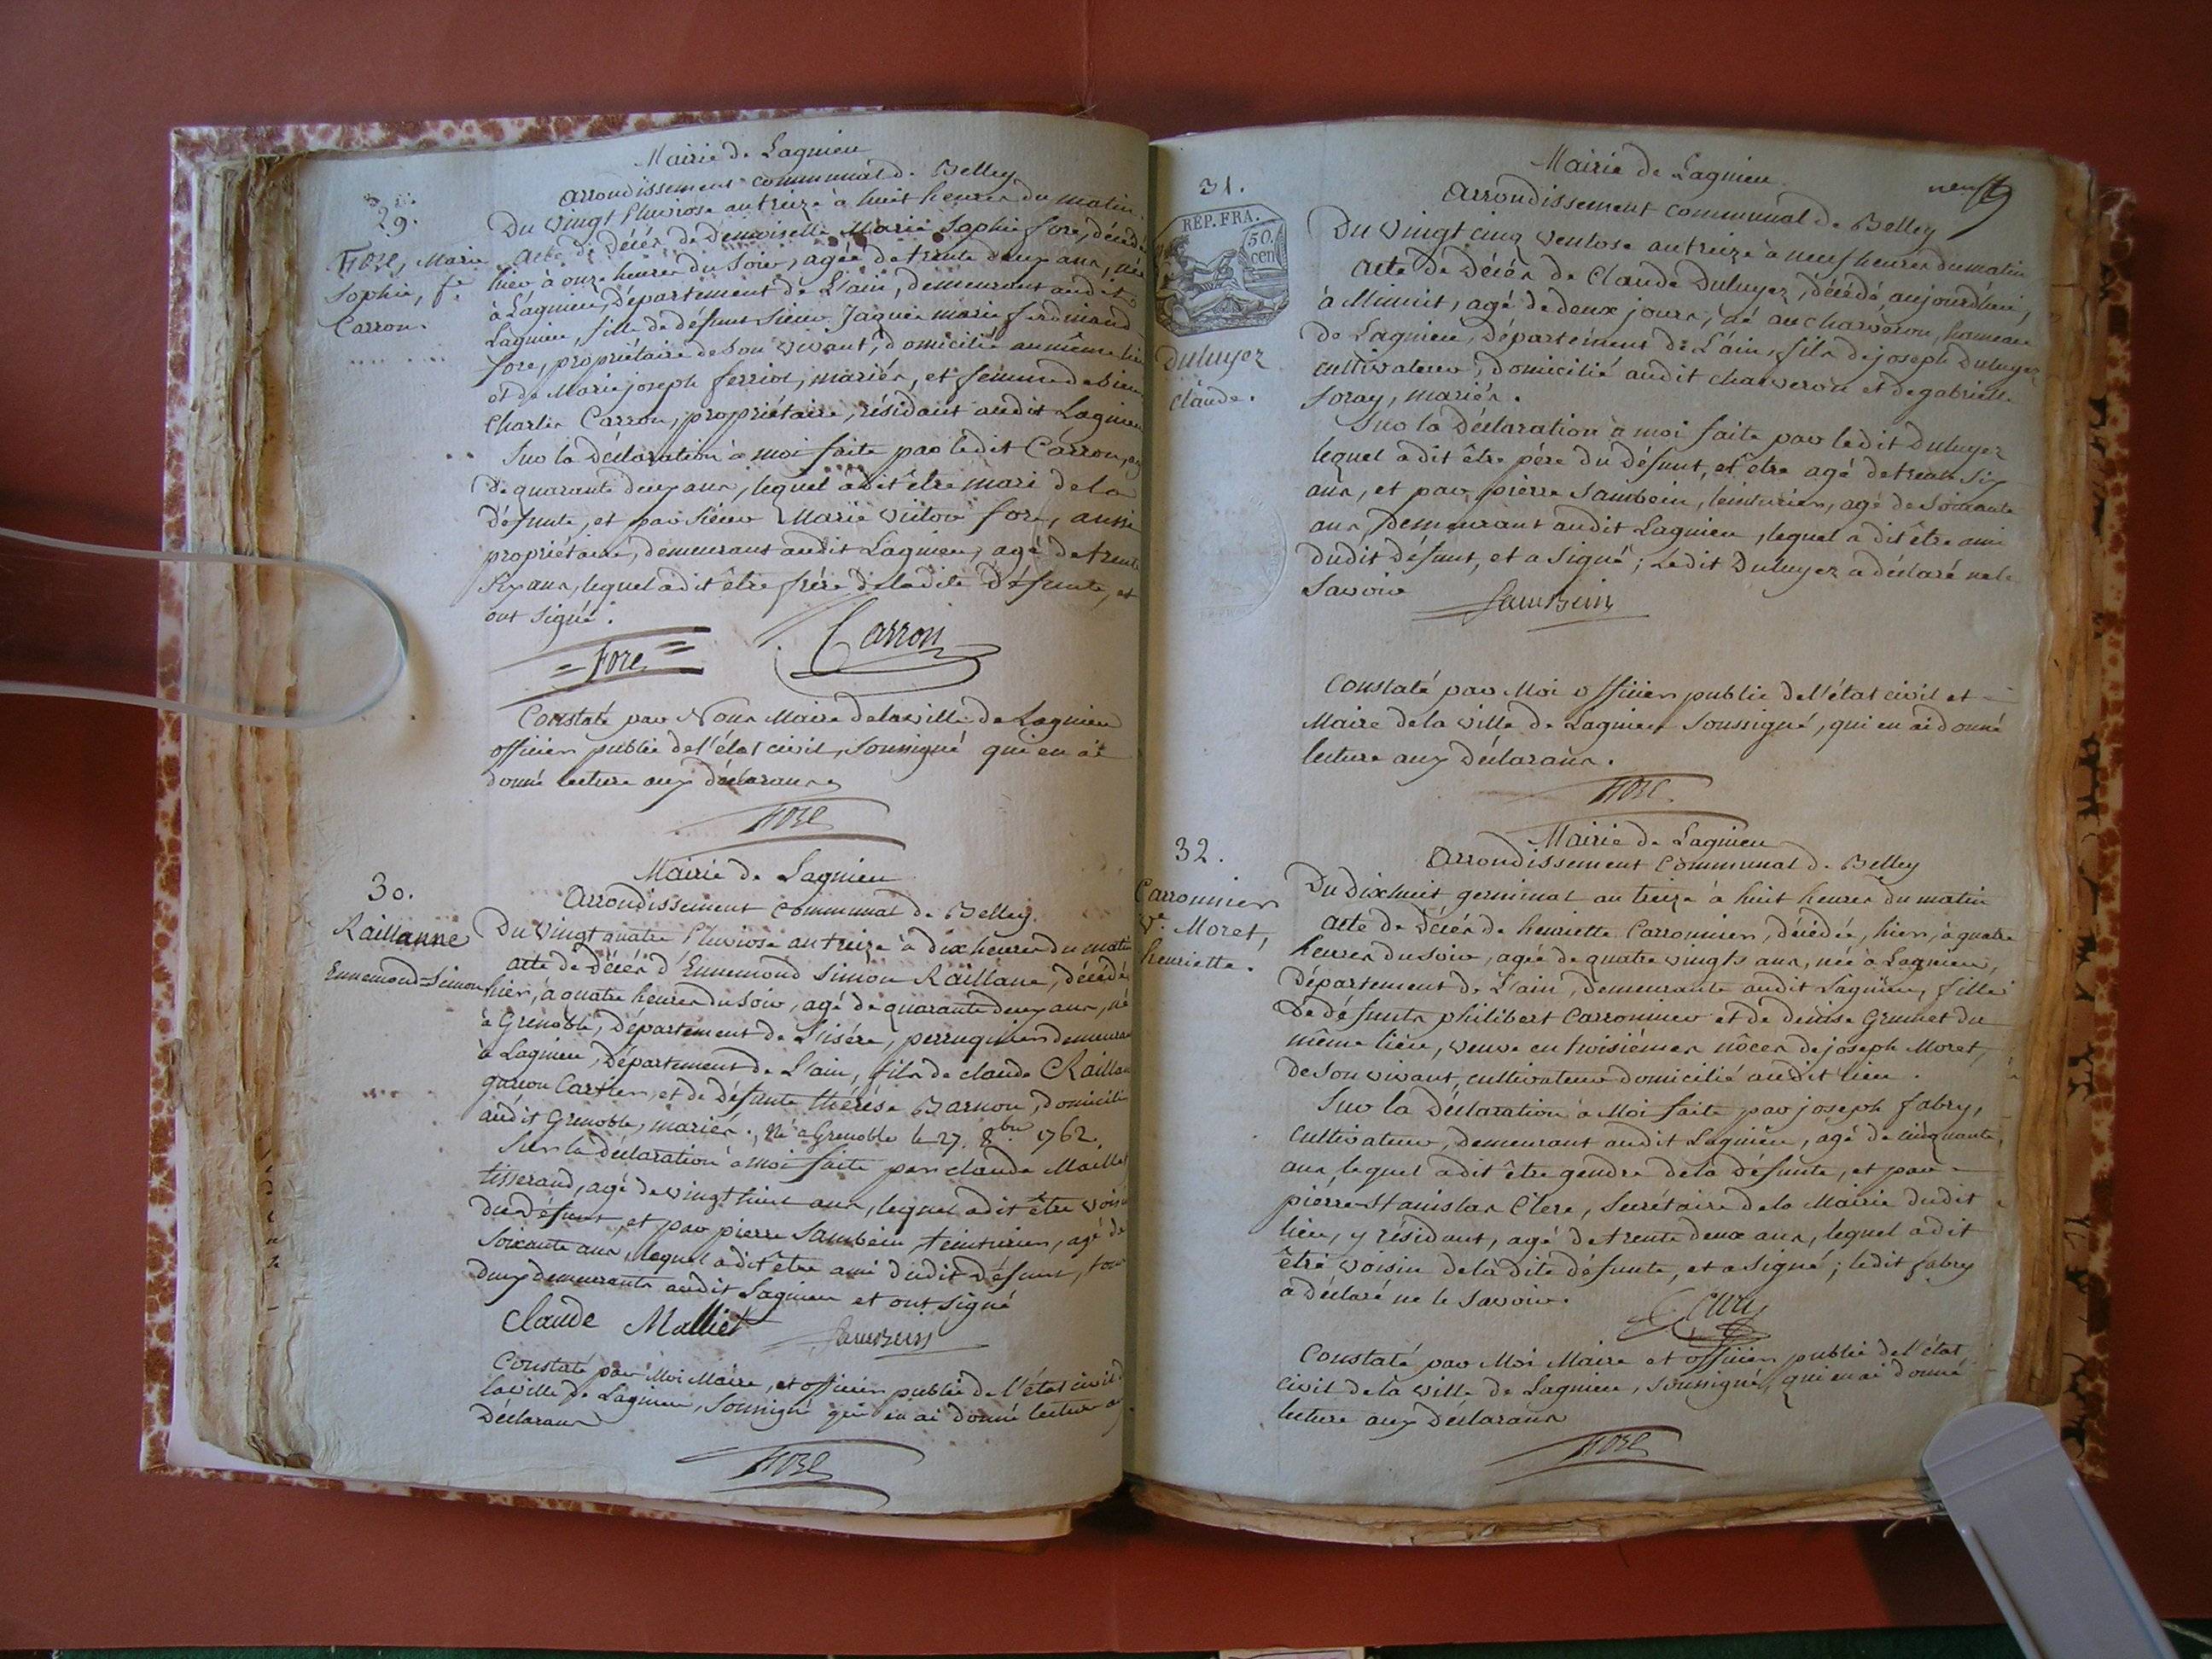 Mairie de Lagnieu
arrondissement communal de Belley
29.
Fore, Marie
Sophie, fe
Carron.
Du vingt Pluviose an treize à huit heures du matin
acte de décès de Demoiselle Marie Sophie fore, décédée
hier à onze heures du soir, agée de trente deux ans, née
à Lagnieu, département de L'ain, demeurant audit
Lagnieu, fille de défunt sieur Jaques marie ferdinand
fore, propriétaire de son vivant, domicilié au même lieu
et de Marie joseph ferrior, mariés, et femme de sieur
Charles Carron, propriétaire, résidant audit Lagnieu
Sur la déclaration à moi faite par ledit Carron, agé
de quarante deux ans, lequel a dit être mari de la
défunte, et par sieur Marie victor fore, aussi
propriétaire, demeurant audit Lagnieu, agé de trente
six ans, lequel a dit être frére de ladite défunte, et
ont signé.
Fore Carron
Constaté par Nous Maire de la ville de Lagnieu
officier public de l'état civil, soussigné qui en ai
donné lecture aux déclarans
Fore
Mairie de Lagnieu
Arrondissement communal de Belley
30.
Raillanne
Ennemond-Simon
Du vingt quatre Pluviose an treize à dix heures du matin
acte de décès d'Ennemond Simon Raillane, décédé
hier, à quatre heures du soir, agé de quarante deux ans, né
à Grenoble, Département de L'isére, perruquier demeurant
à Lagnieu, Département de L'ain, fils de claude Raillane
et de défunte thérése Barnou, domiciliés
audit Grenoble, mariés. Né a Grenoble le 27. 8bre 1762
Sur la déclaration à moi faite par claude Maillet
tisserand, agé de vingt huit ans, lequel a dit être voisin
du défunt, et par pierre Sambein, teinturier, agé de
soixante ans, lequel a dit être ami dudit défunt, tous
deux demeurants audit Lagnieu et ont signé
Claude Malliet Sambein
Constaté par Moi Maire, et officier public de l'état civil de
la ville de Lagnieu, soussigné qui en ai donné lecture aux
Déclarans
Fore
neuf
Mairie de Lagnieu
Arrondissement communal de Belley
31.
REP. FRA.
50.
cen
Duluyez
claude.
Du vingt cinq ventose an treize à neuf heures du matin
acte de décès de Claude Duluyez, décédé aujourd'hui,
à Minuit, agé de deux jours, né au charveron, hameau
de Lagnieu, Département de L'ain, fils de joseph Duluyez
cultivateur, domicilié audit charveron et de gabrielle
soray, mariés.
Sur la déclaration à moi faite par ledit Duluyez
lequel a dit être pére du défunt, et être agé de trente six
ans, et par pierre Sambein, teinturier, agé de soixante
ans, demeurant audit Lagnieu, lequel a dit être ami
dudit défunt, et a signé; ledit Duluyez a déclaré ne le
savoir Sambein
Constaté par Moi officier public de l'état civil et
Maire de la ville de Lagnieu soussigné, qui en ai donné
lecture aux déclarans.
Fore
Mairie de Lagnieu
Arrondissement Communal de Belley
32.
Carronnier
Ve Moret,
henriette.
Du Dixhuit germinal an treize à huit heures du matin
acte de décès de henriette Carronnier, décédée, hier, à quatre
heures du soir, agée de quatre vingts ans, née à Lagnieu,
Département de L'ain, demeurante audit Lagnieu, fille
de défunts philibert Carronnier et de denise Grunet du
même lieu, veuve en troisiémes nôces de joseph Moret,
de son vivant, cultivateur domicilié audit lieu.
Sur la déclaration à Moi faite par joseph fabry,
cultivateur, demeurant audit Lagnieu, agé de cinquante
ans, lequel a dit être gendre de la défunte, et par
pierre Stanislas Clerc, secrétaire de la Mairie dudit
lieu, y résidant, agé de trente deux ans, lequel a dit
être voisin de la dite défunte, et a signé; ledit fabry
a déclaré ne le savoir.
Constaté par Moi Maire et officier public de l'état
civil de la ville de Lagnieu, soussigné, qui en ai donné
lecture aux déclarans
Fore